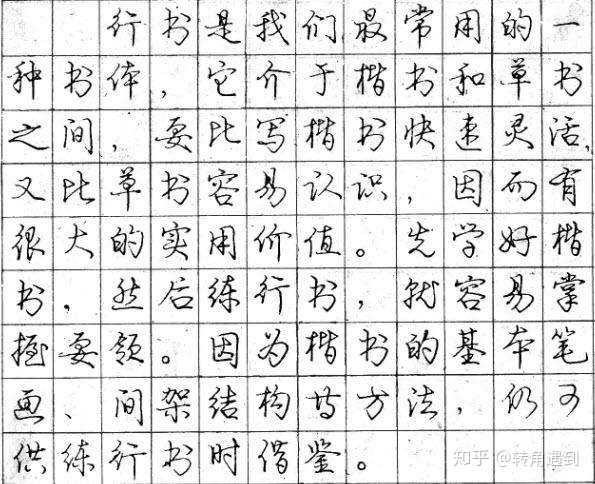 行书是我们最常用的一
种书体，它介于楷书和草书
之间，要比写楷书快速灵活，
又比草书容易认识，因而有
很大的实用价值。先学好楷
书，然后练行书，就容易掌
握要领。因为楷书的基本笔
画、间架结构等方法，仍可
供练行书时借鉴。
知乎 @转角遇到